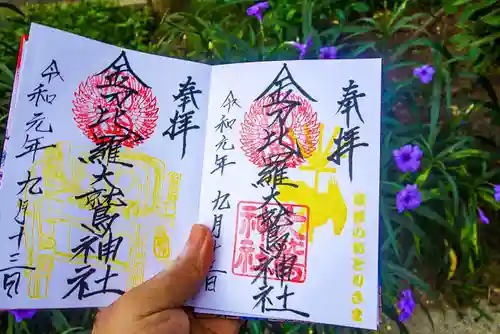 奉拝
金刀比羅大鷲神社
令和元年九月十三日
奉拝
金刀比羅大鷲神社
令和元年 九月十三日